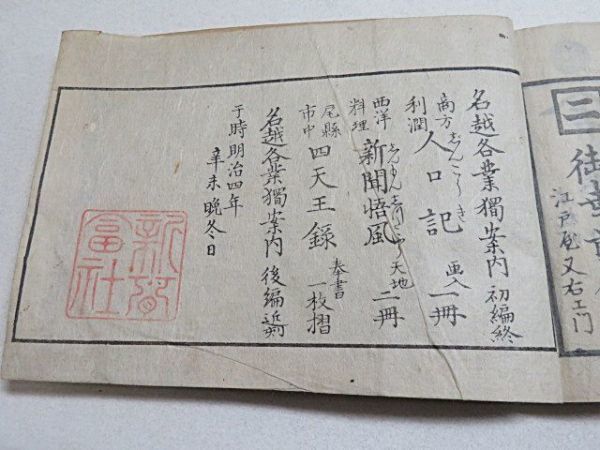 二
江戸屋又右エ門
名越各業獨案内 初編終
商方利潤 人口記 画入 一冊
志んこうき
西洋料理 新聞悟風 天地 二冊
尾縣市中 四天王録 奉書 一枚摺
名越各業獨案内 後編近刻
于時明治四年
辛未晩冬日